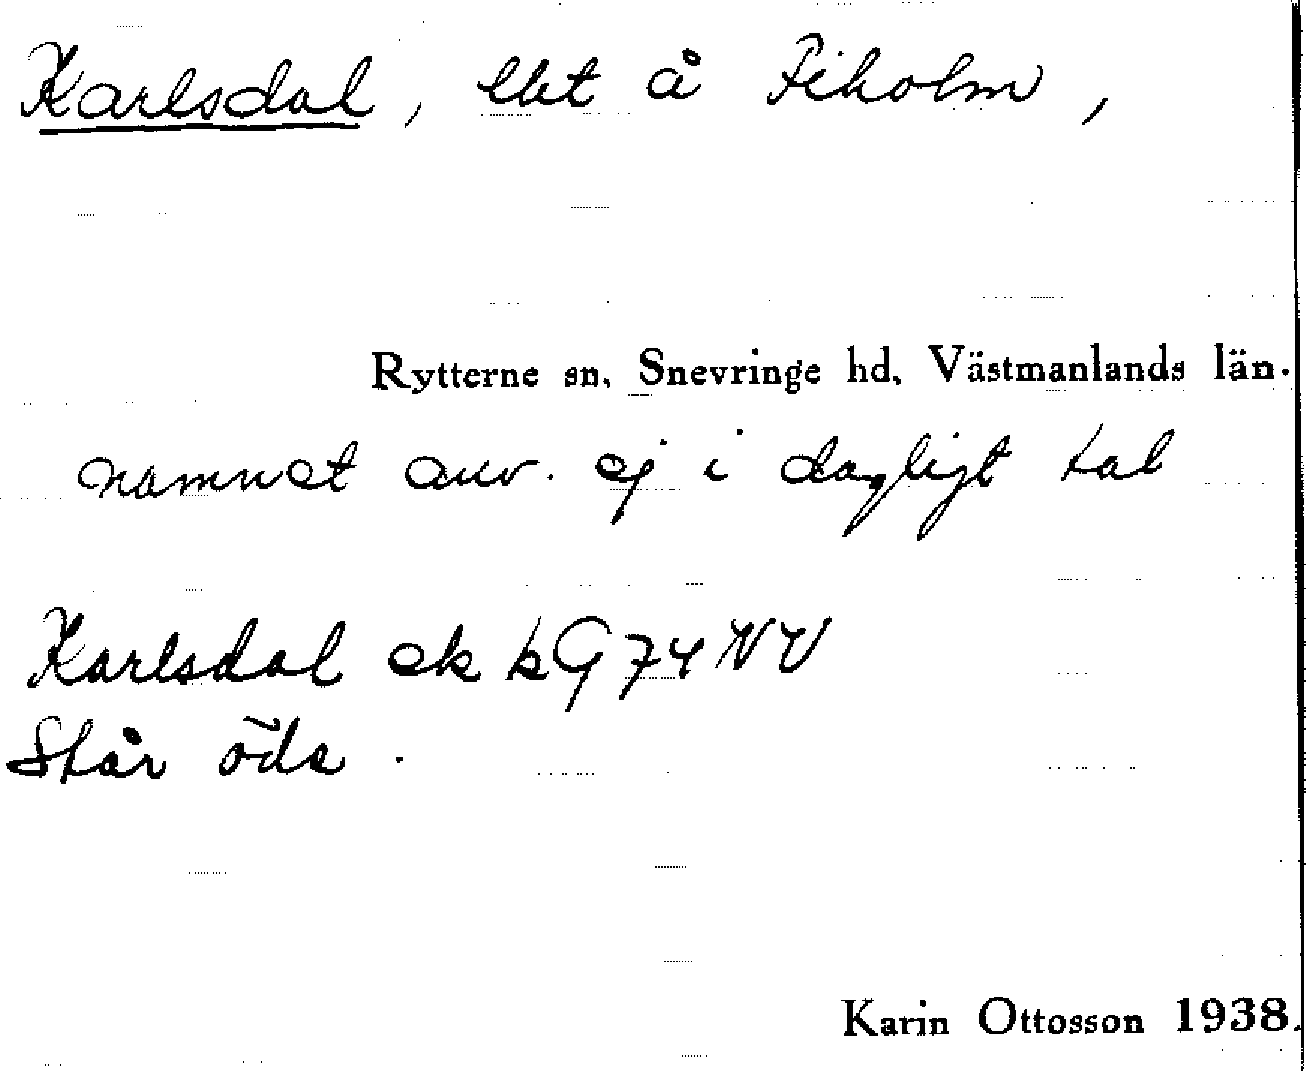 Karlsdal, lht å Fiholm,
Rytterne sn, Snevringe hd, Västmanlands län.
namnet anv. ej i dagligt tal
Karlsdal ek bG 74 NV
Står öde.
Karin Ottosson 1938.